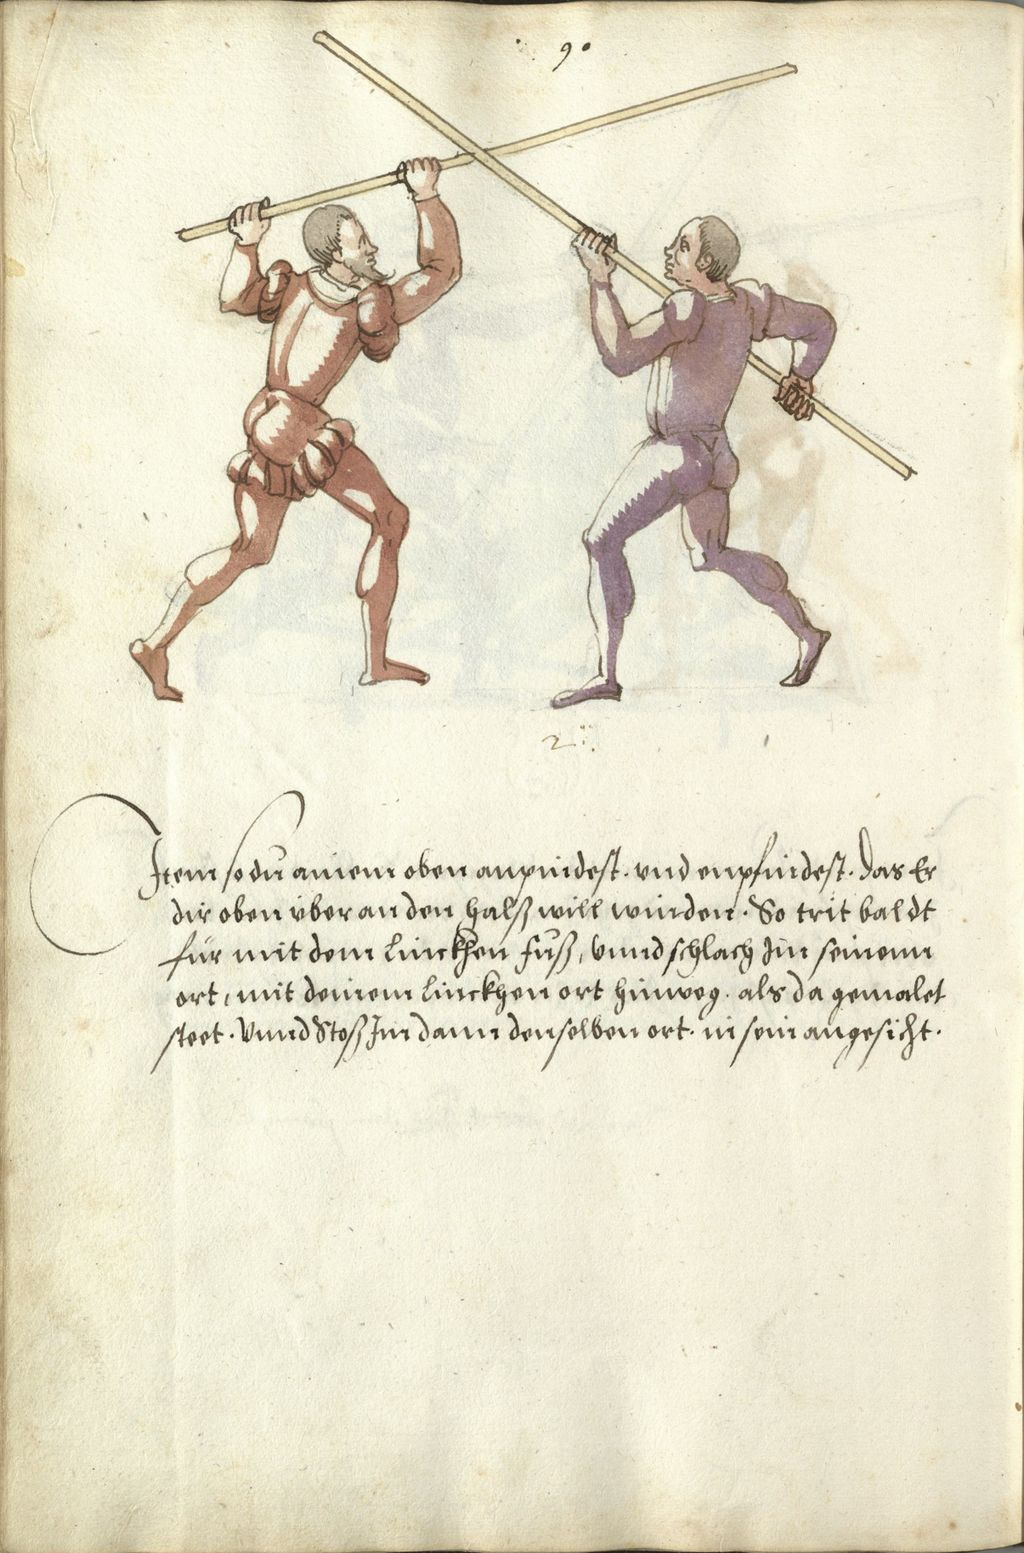 90
2
Item so du ainem oben anpindest. und enpfindest. das Er
dir oben vber an den halß will winden. So trit baldt
für mit dem linckhen fuß, vnnd schlach Im seinenn
ort, mit deinem linckhen ort hinweg. als da gemalet
steet. Vnnd Stoß Im dann denselben ort. in sein angesicht.